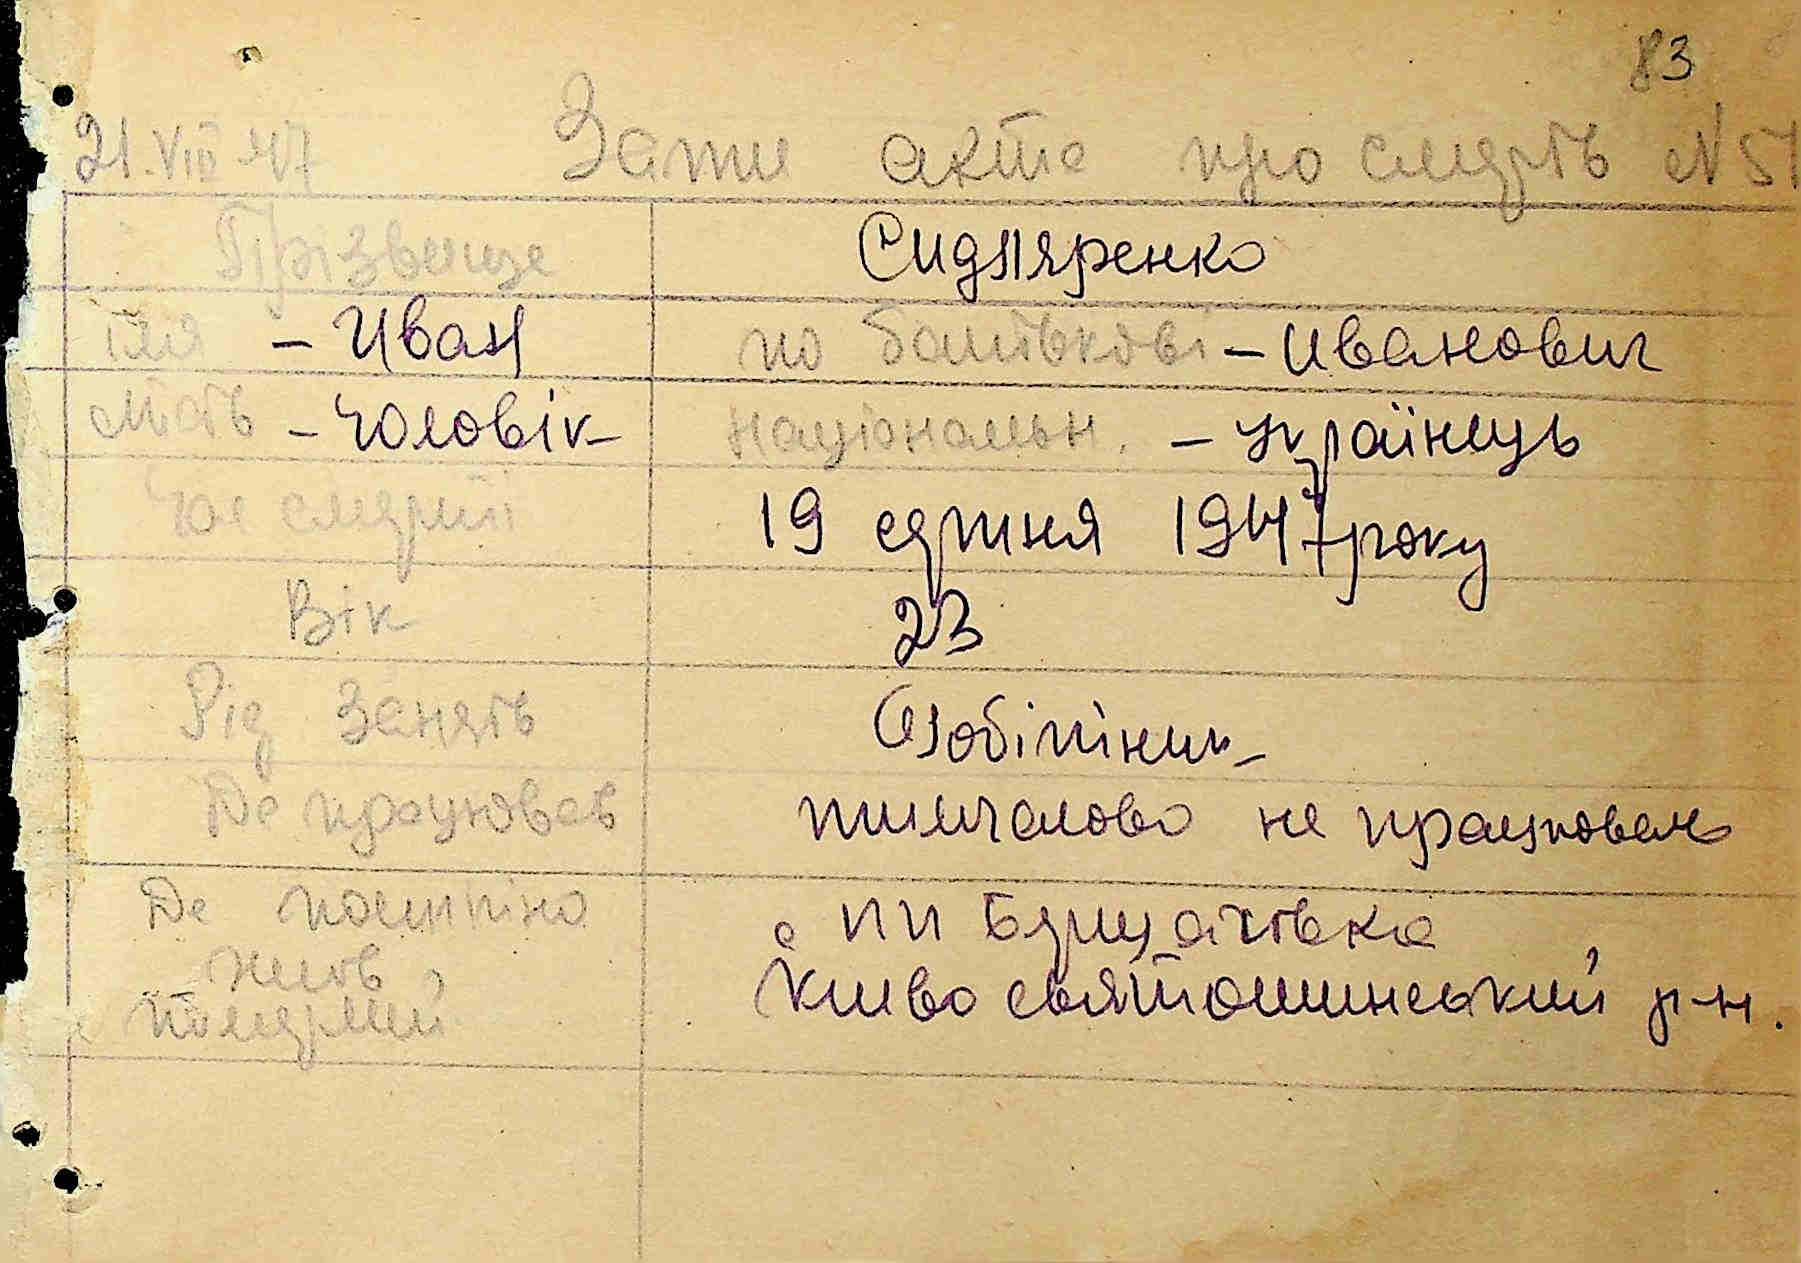 83
21.VIII 47 Запис акта про смерть N 51
Прізвище Сидляренко
імя - Иван по батькові - Иванович
стать - Чоловік - національн. - українець
Час смерті 19 серпня 1947 року
Вік 23
Рід занять
Де працював тимчасово не працював
Де постійно с ПП Борщагівка
жив
померший Києво святошинський р-н.